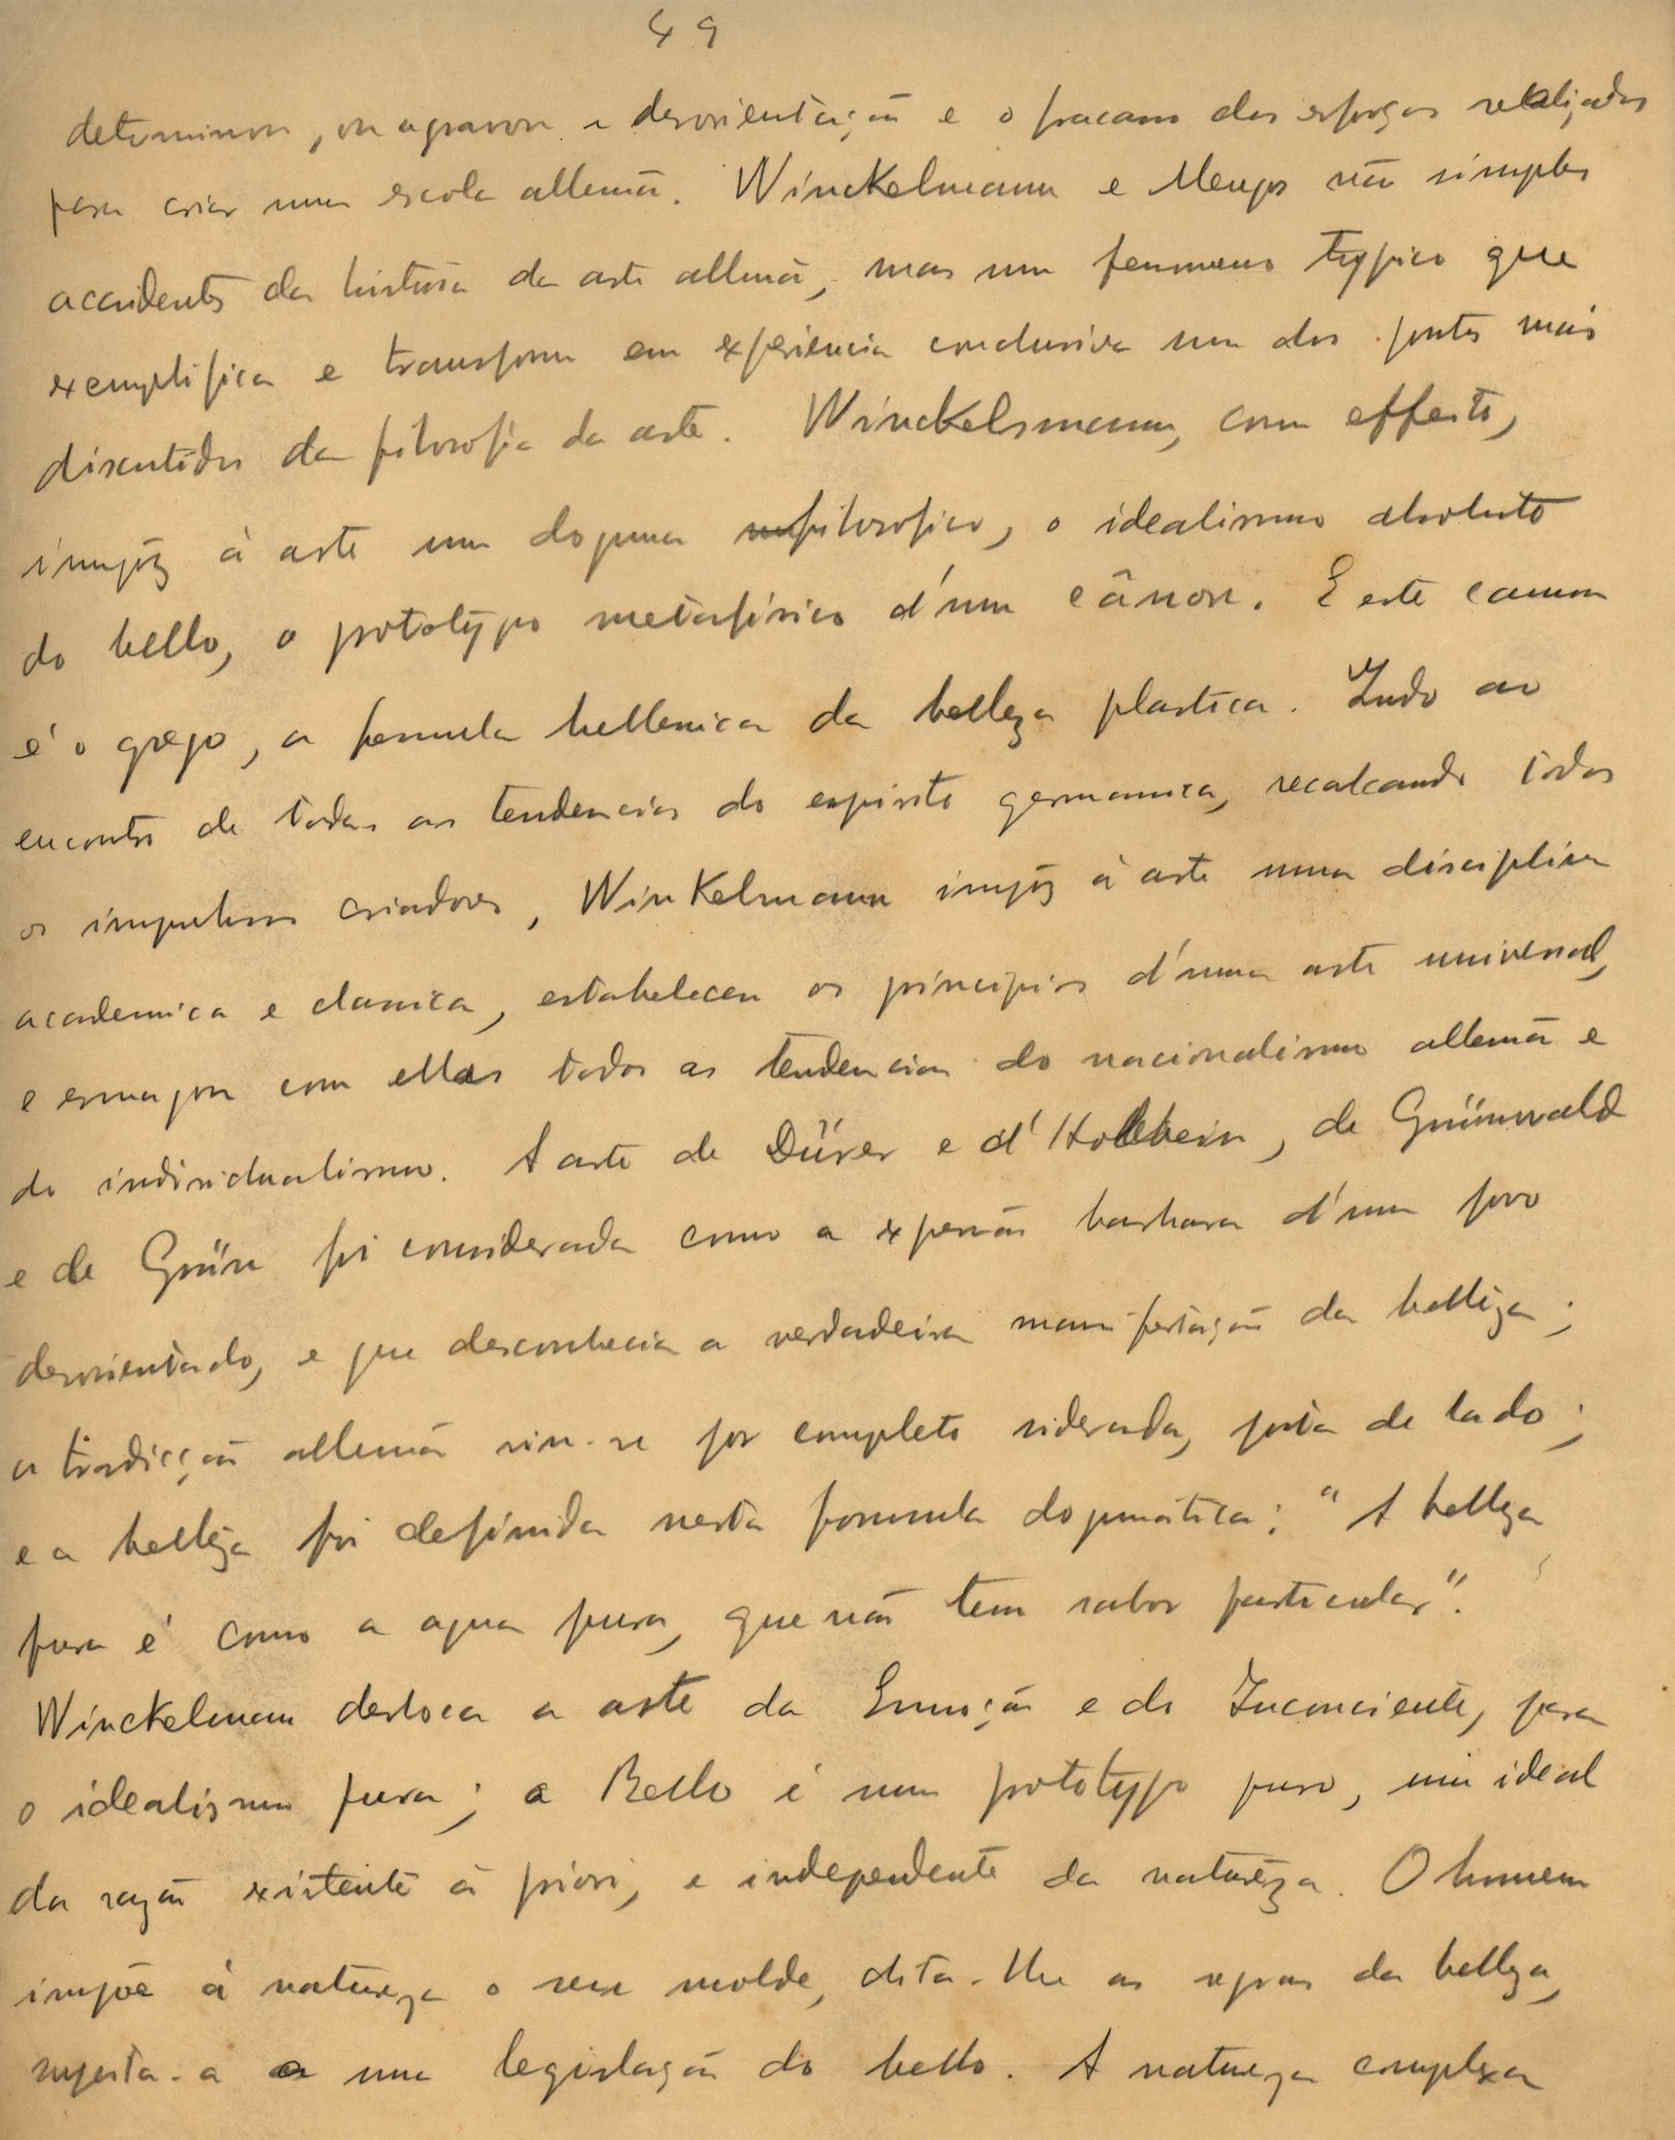 49
determinou, ou agravou a desorientação e o fracasso dos esforços realizados
para criar uma escola allemã. Winckelmann e Mengs não simples
accidentes da historia da arte allemã, mas um fenomeno typico que
exemplifica e transforma em experiencia conclusiva um dos pontos mais
discutidos da filosofia da arte. Winckelsmann, com effeito,
impôz á arte um dogma filosofico, o idealismo absoluto
do bello, o prototypo metafisico d'um cânon. E este canon
é o grego, a formula hellenica da belleza plastica. Indo ao
encontro de todas as tendencias do espirito germanica, recalcando todos
os impulsos criadores, Winkelmann impôz á arte uma disciplina
academica e classica, estabeleceu os principios d'uma arte universal,
e esmagou com elles todas as tendencias do nacionalismo allemã e
do individualismo. A arte de Dürer e d'Holbein, de Grünwald
e de Grün foi considerada como a expressão barbara d'um povo
desorientado, e que desconhecia a verdadeira manifestação da belleza;
a tradicção allemã viu-se por completo siderada, posta de lado;
e a belleza foi definida nesta formula dogmática: "A belleza
pura é como a agua pura, que não tem sabor particular".
Winckelmann desloca a arte da Emoção e do Inconciente, para
o idealismo puro; o Bello é um prototypo puro, um ideal
da razão existente á priori, e independente da natureza. O homem
impõe á natureza o seu molde, dita-lhe as regras da belleza,
sujeita-a a uma legislação do bello. A natureza complexa